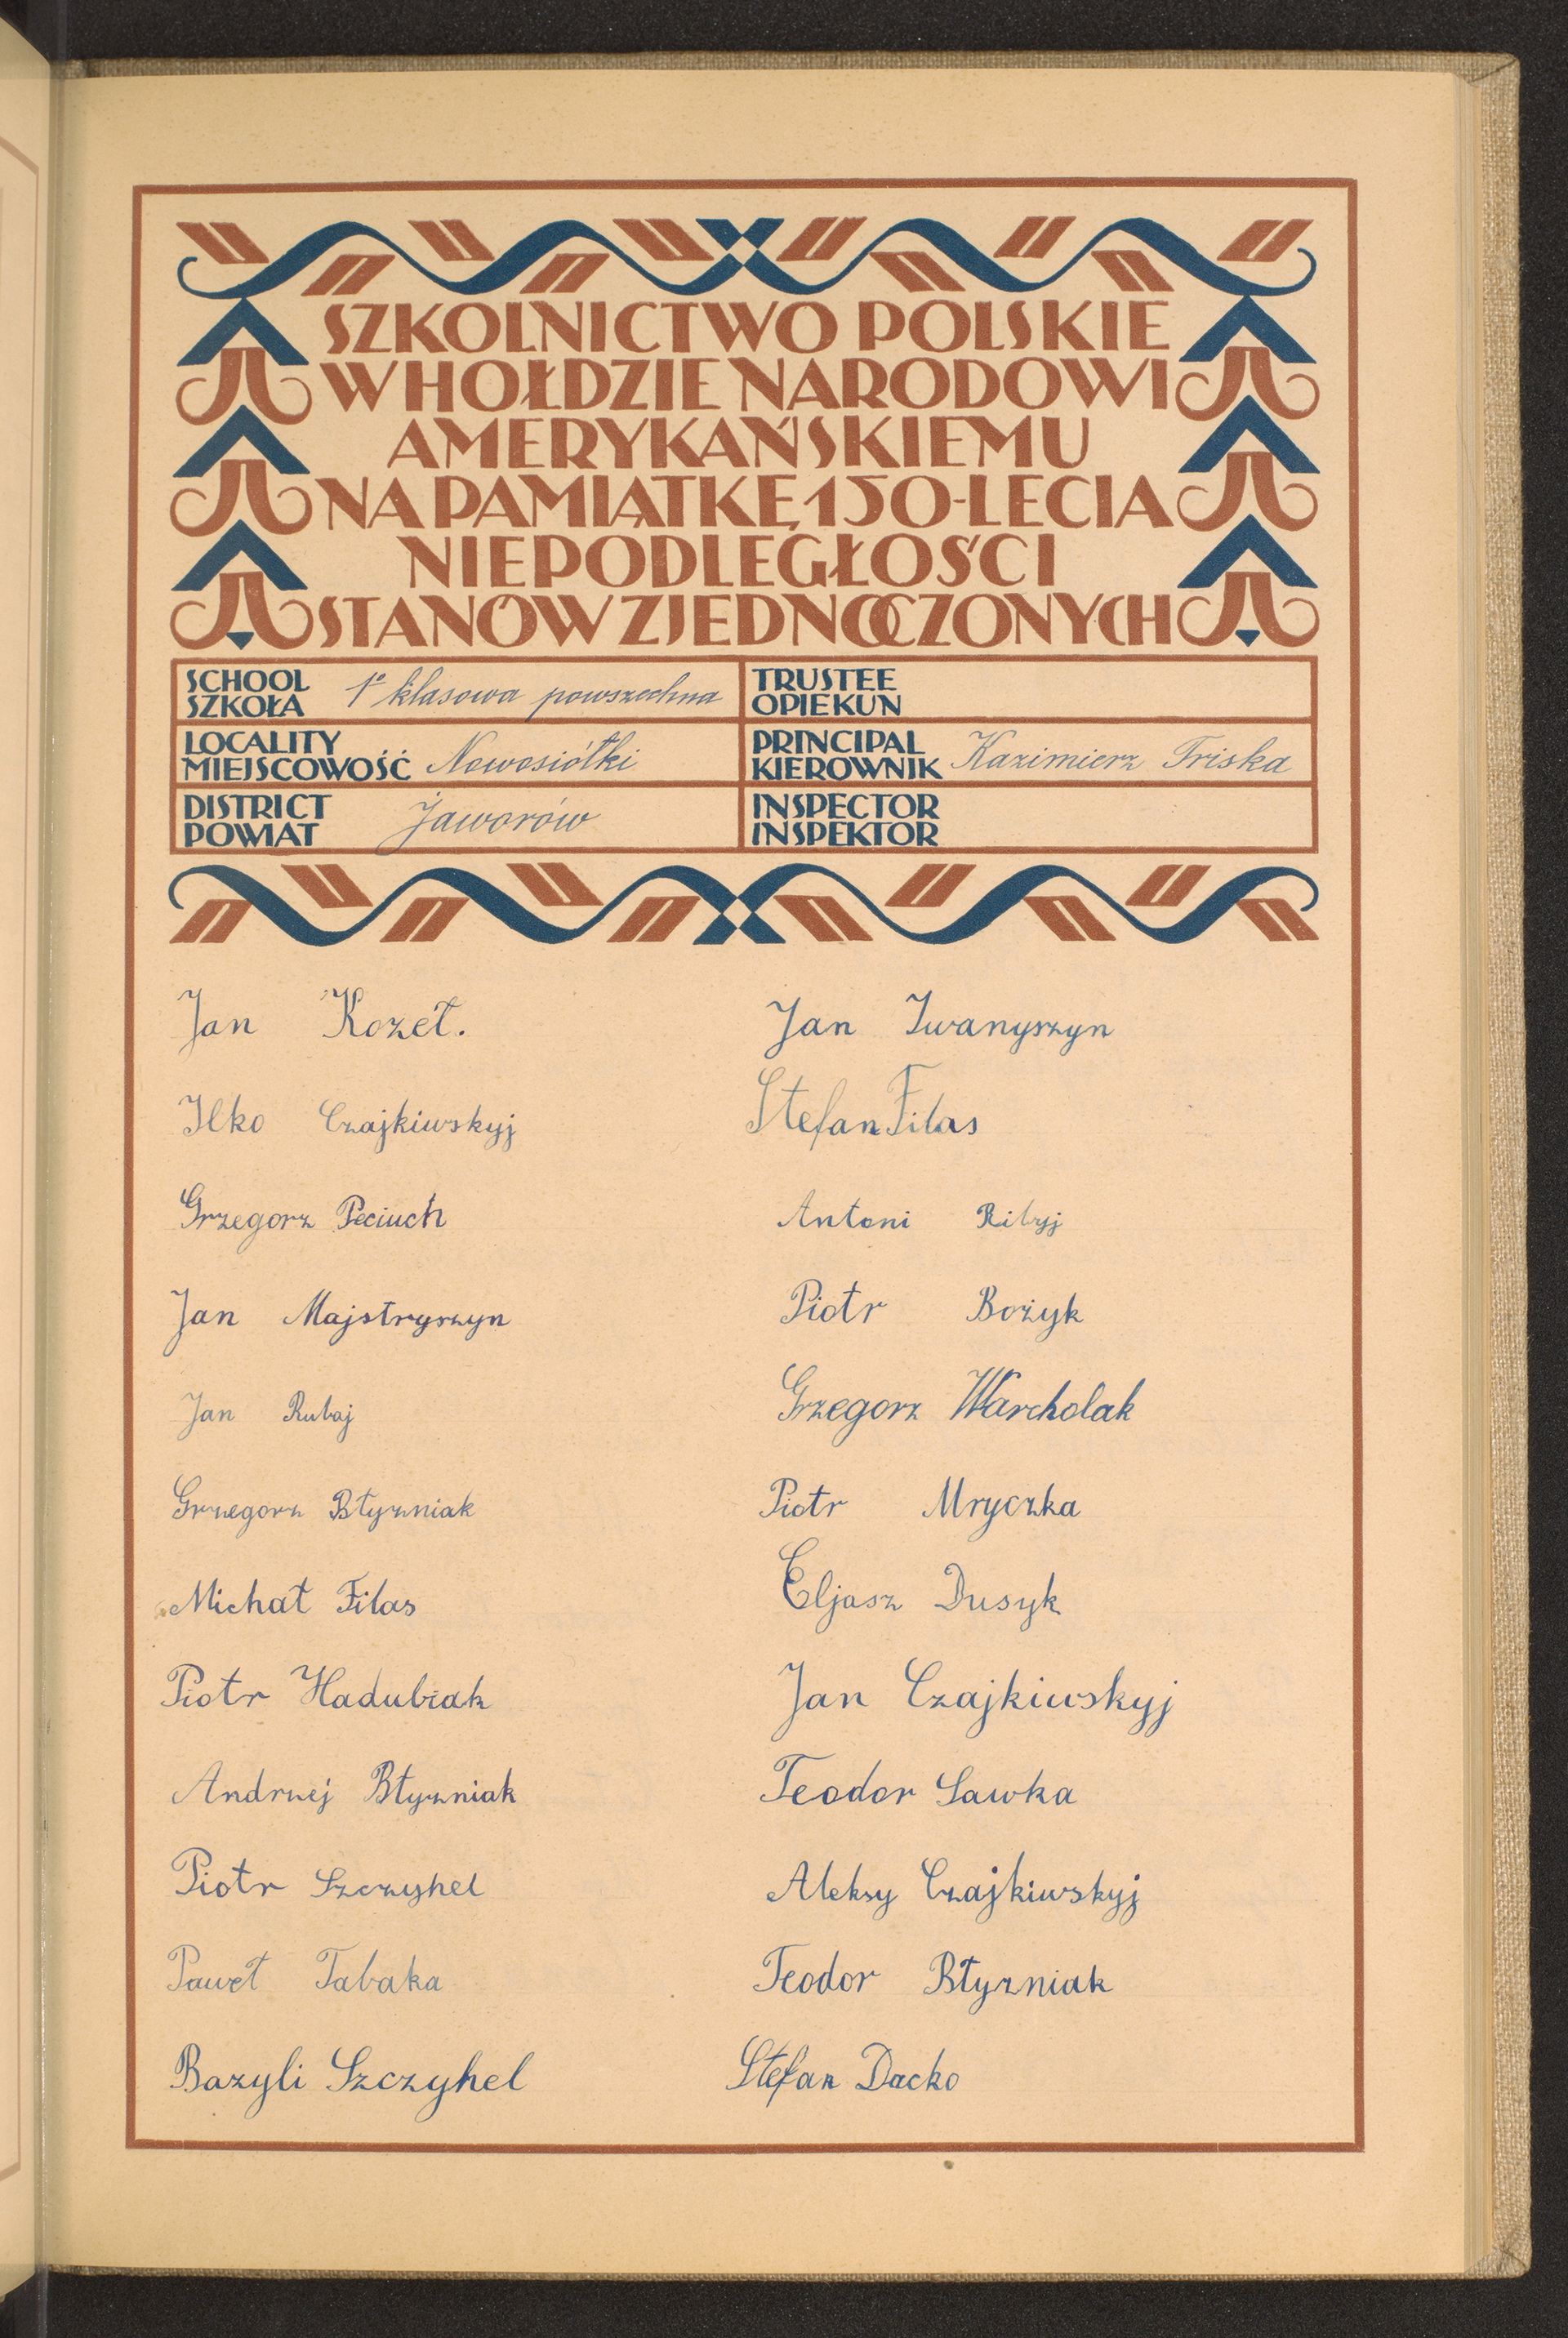 SZKOLNICTWO POLSKIE
W HOŁDZIE NARODOWI
AMERYKAŃSKIEMU
NA PAMIĄTKĘ 150-LECIA
NIEPODLEGŁOŚCI
STANÓW ZJEDNOCZONYCH
SCHOOL
SZKOŁA
1º klasowa powszechna
TRUSTEE
OPIEKUN
LOCALITY
MIEJSCOWOŚĆ
Nowosiółki
PRINCIPAL
KIEROWNIK
Kazimierz Triska
DISTRICT
POWIAT
Jaworów
INSPECTOR
INSPEKTOR
Jan Kozeł.
Ilko Czajkiwskyj
Grzegorz Peciuch
Jan Majstryszyn
Jan Rubaj
Grzegorz Błyzniak
Michał Filas
Piotr Hadubiak
Andrzej Błyzniak
Piotr Szczyhel
Paweł Tabaka
Bazyli Szczyhel
Jan Iwanyszyn
Stefan Filas
Antoni
Piotr Bożyk
Grzegorz Warcholak
Piotr Mryczka
Eljasz Dusyk
Jan Czajkiwskyj
Teodor Sawka
Aleksy Czajkiwskyj
Teodor Błyzniak
Stefan Dacko